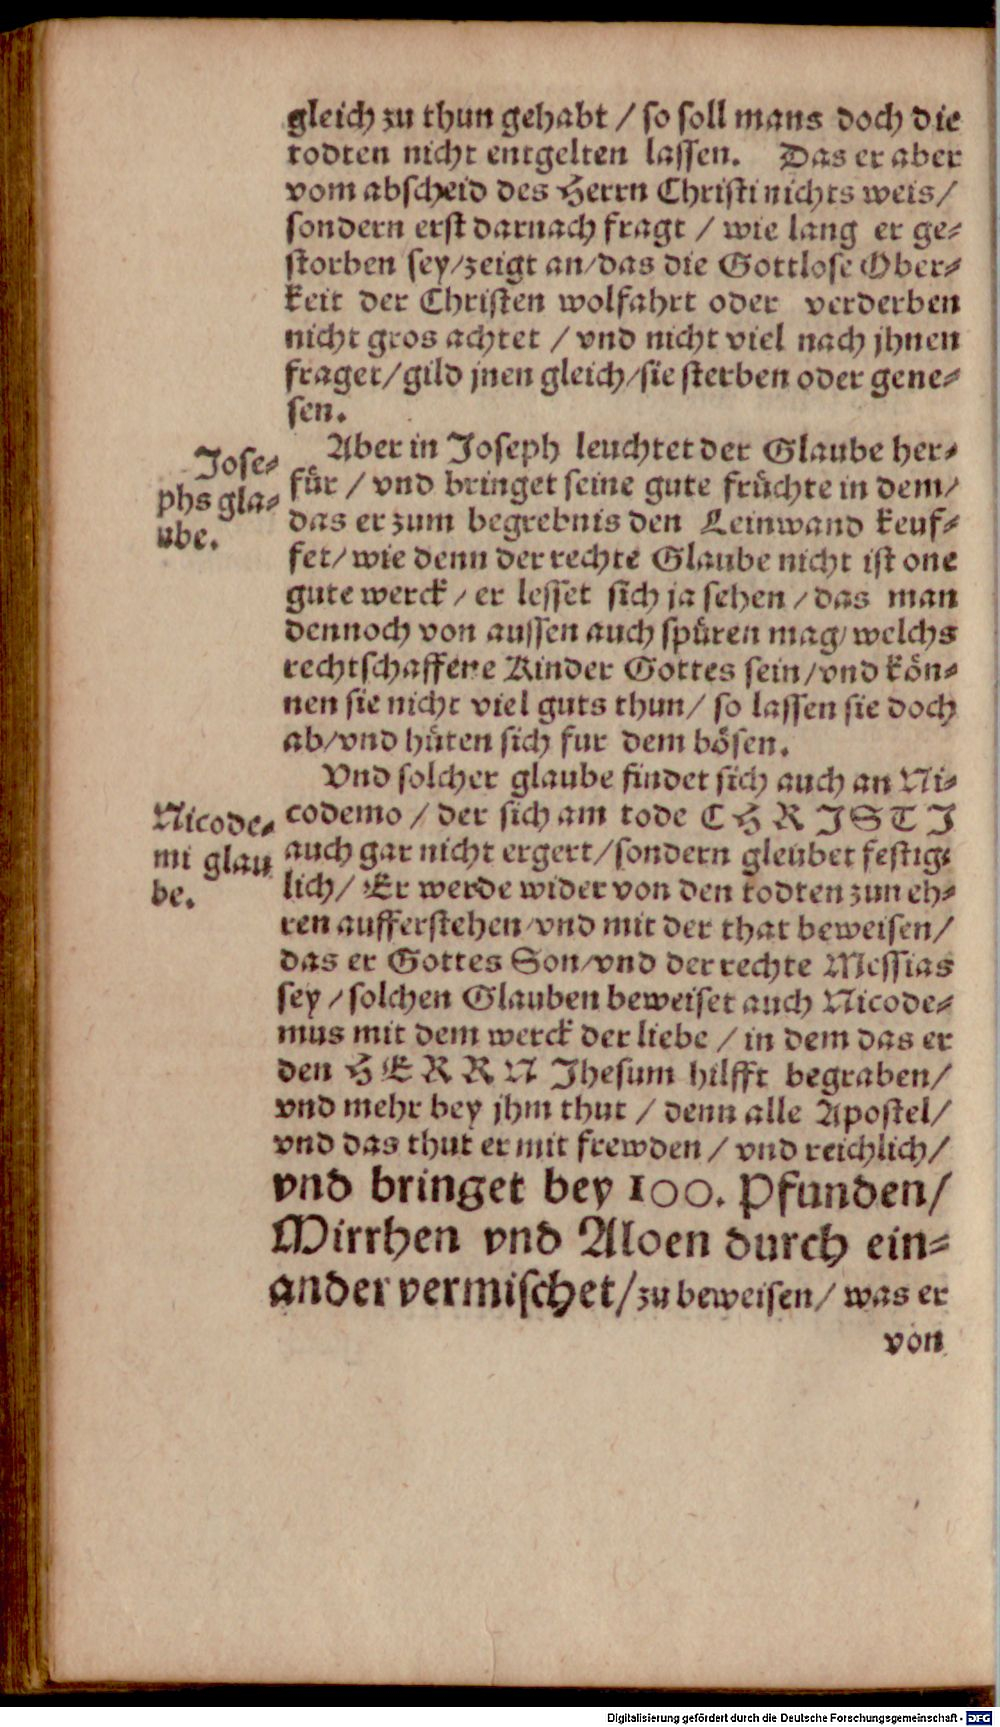 gleich zu thun gehabt / so soll mans doch die
todten nicht entgelten lassen. Das er aber
vom abscheid des Herrn Christi nichts weis /
sondern erst darnach fragt / wie lang er ge-
storben sey / zeigt an / das die Gottlose Ober-
keit der Christen wolfahrt oder verderben
nicht gros achtet / vnd nicht viel nach jhnen
fraget / gild jnen gleich / sie sterben oder gene-
sen.
Jose-
phs gla-
ube.
Aber in Joseph leuchtet der Glaube her-
fuͤr / vnd bringet seine gute fruͤchte in dem /
das er zum begrebnis den Leinwand keuf-
fet / wie denn der rechte Glaube nicht ist one
gute werck / er lesset sich ja sehen / das man
dennoch von aussen auch spuͤren mag / welchs
rechtschaffene Kinder Gottes sein / vnd koͤn-
nen sie nicht viel guts thun / so lassen sie doch
ab / vnd huͤten sich fur dem boͤsen.
Nicode-
mi glau
be.
Vnd solcher glaube findet sich auch an Ni-
codemo / der sich am tode CHRISTI
auch gar nicht ergert / sondern gleubet festig-
lich / Er werde wider von den todten zun eh-
ren aufferstehen / vnd mit der that beweisen /
das er Gottes Son / vnd der rechte Messias
sey / solchen Glauben beweiset auch Nicode-
mus mit dem werck der liebe / in dem das er
den HERRN Jhesum hilfft begraben /
vnd mehr bey jhm thut / denn alle Apostel /
vnd das thut er mit frewden / vnd reichlich /
vnd bringet bey 100. Pfunden /
Mirrhen vnd Aloen durch ein-
ander vermischet / zu beweisen / was er
von
Digitalisierung gefördert durch die Deutsche Forschungsgemeinschaft - DFG